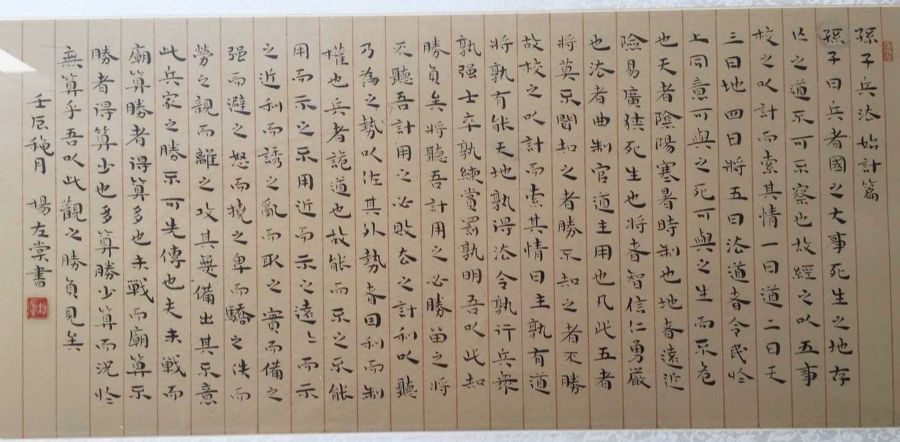 孫子兵法始計篇
孫子曰兵者國之大事死生之地存
亡之道不可不察也故經之以五事
校之以計而索其情一曰道二曰天
三曰地四曰將五曰法道者令民於
上同意可與之死可與之生而不危
也天者陰陽寒暑時制也地者遠近
險易廣狹死生也將者智信仁勇嚴
也法者曲制官道主用也凡此五者
將莫不聞知之者勝不知之者不勝
故校之以計而索其情曰主孰有道
將孰有能天地孰得法令孰行兵眾
孰强士卒孰練賞罰孰明吾以此知
勝負矣將聽吾計用之必勝留之將
不聽吾計用之必敗去之計利以聽
乃為之勢以佐其外勢者因利而制
權也兵者詭道也故能而示之不能
用而示之不用近而示之遠〻而示
之近利而誘之亂而取之實而備之
强而避之怒而撓之卑而驕之佚而
勞之親而離之攻其無備出其不意
此兵家之勝不可先傳也夫未戰而
廟算勝者得算多也未戰而廟算不
勝者得算少也多算勝少算而況於
無算乎吾以此觀之勝負見矣
壬辰穐月 楊左棠書